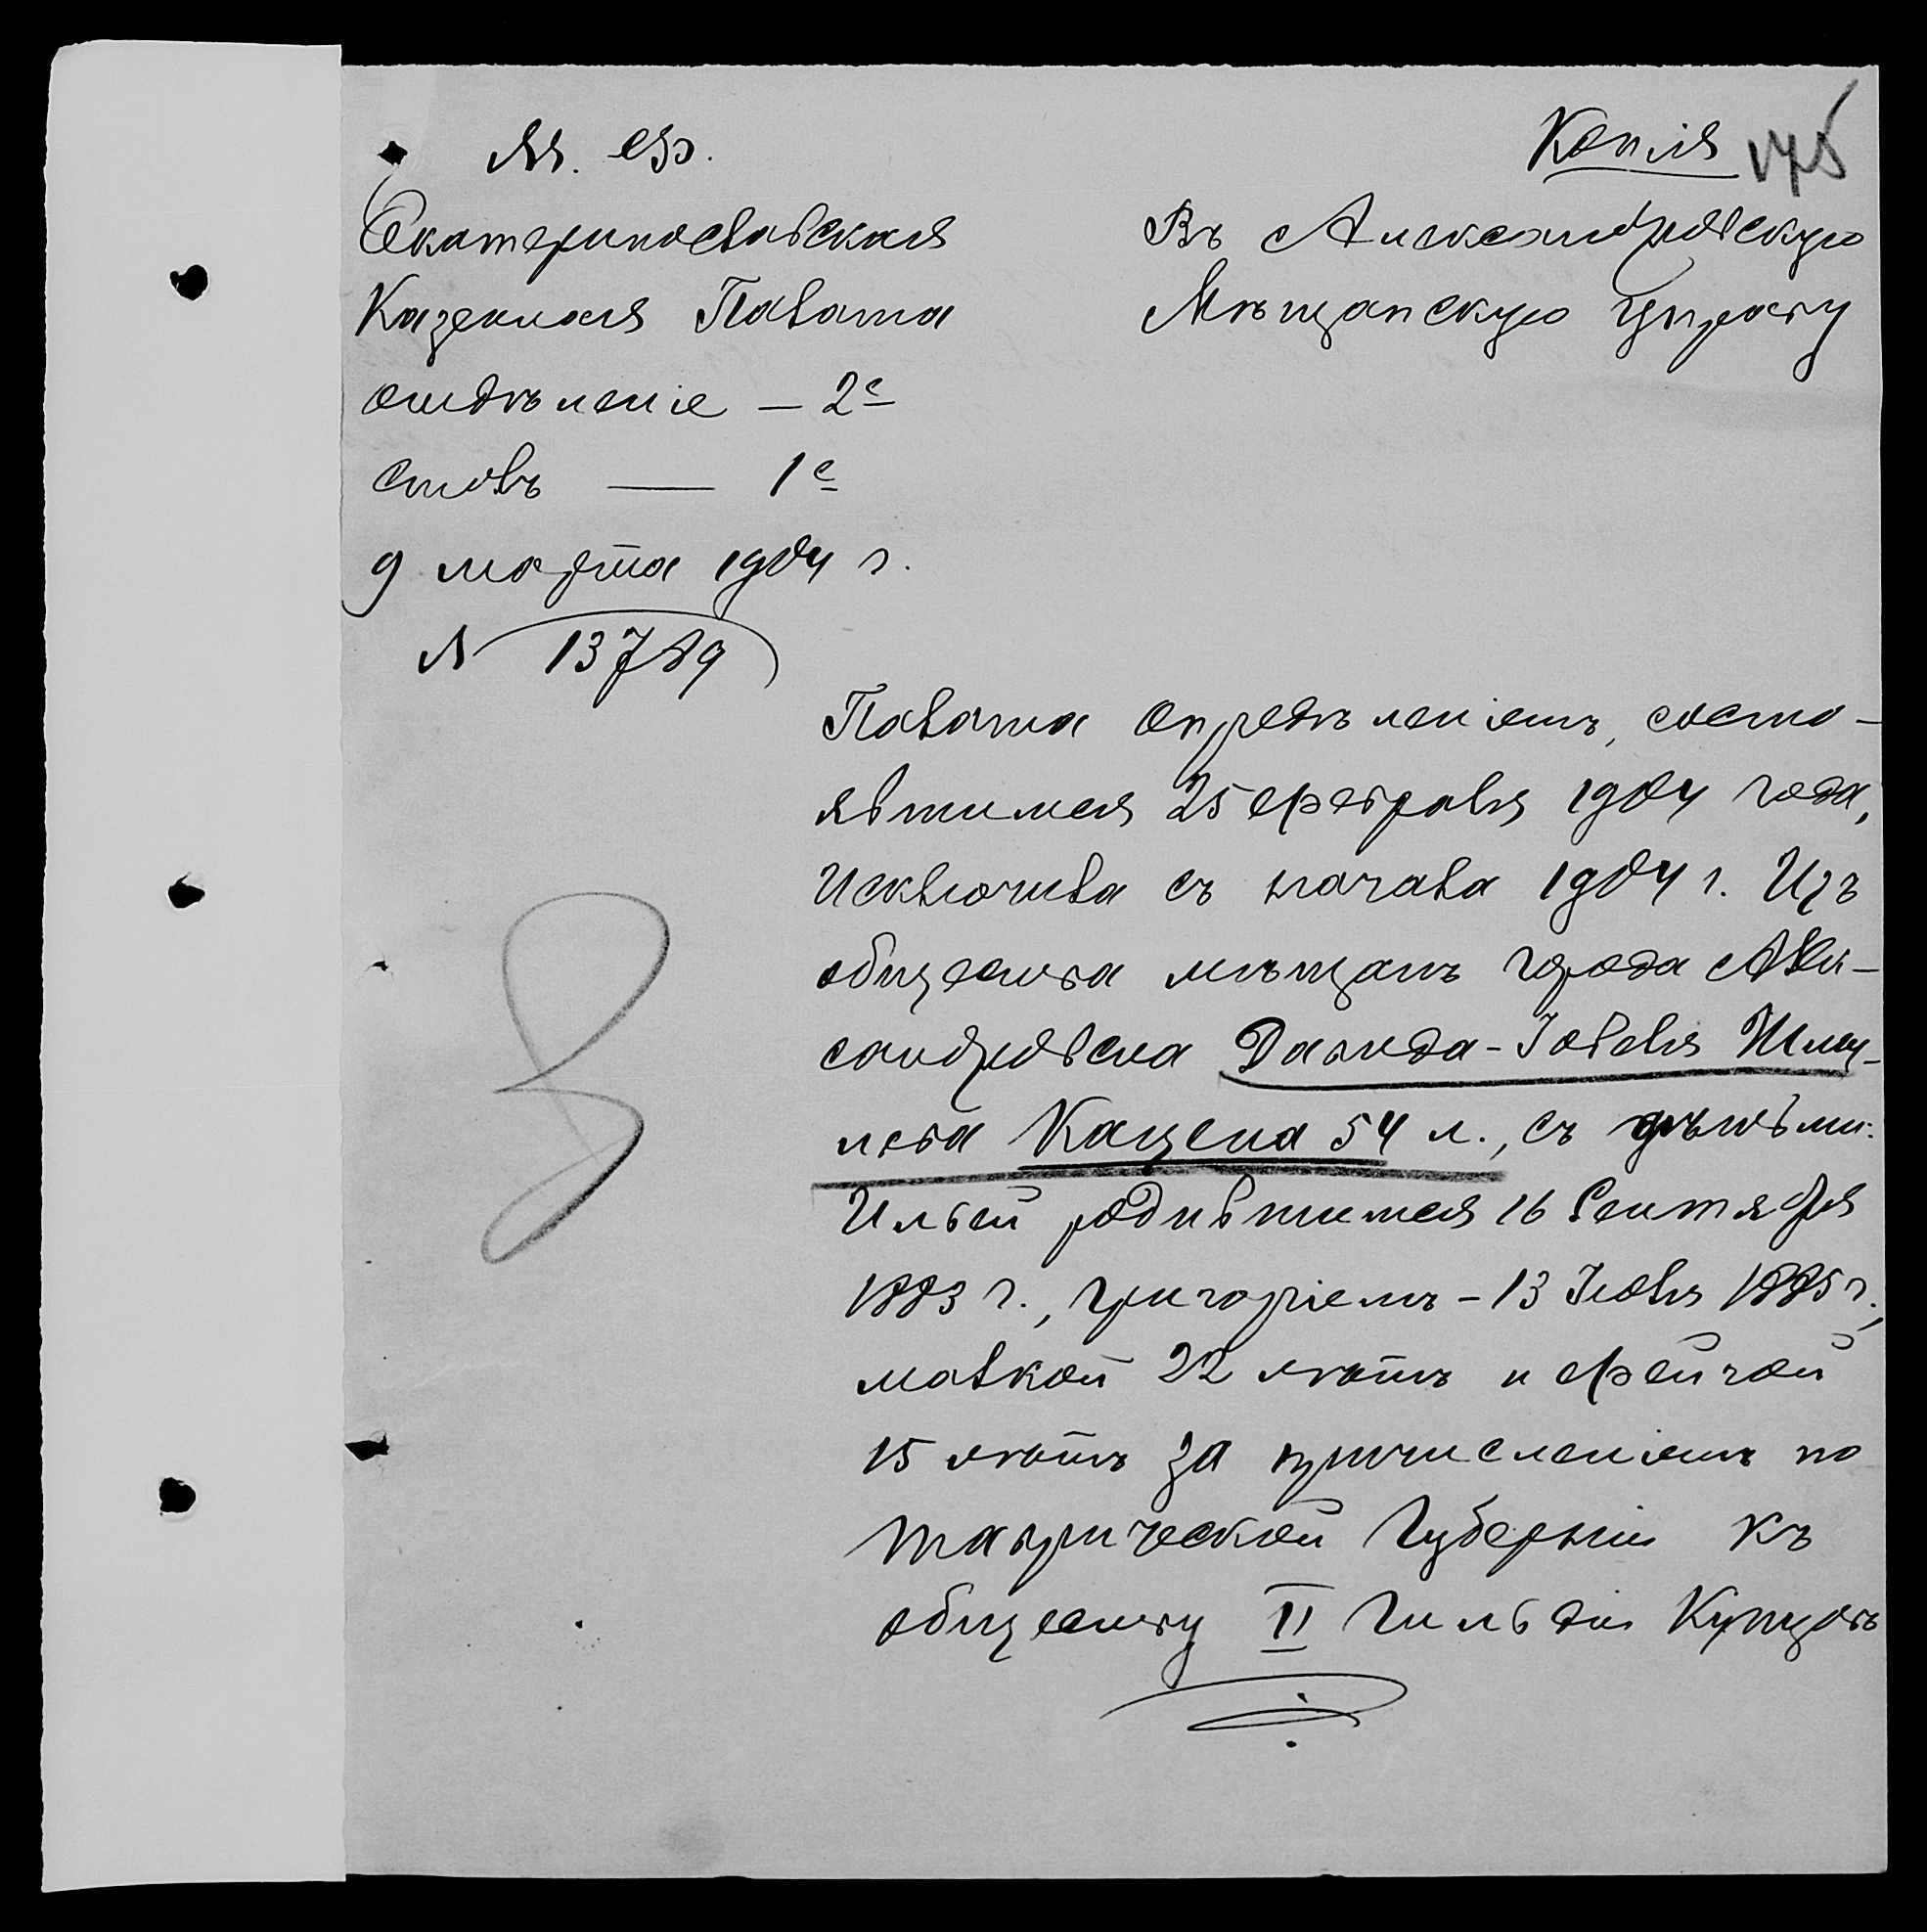 М. Ф.
Копія 175
Екатеринославская
Казенная Палата
отдѣленіе — 2е
столъ — 1е
9 марта 1904 г.
№ 13789
Въ Александровскую
Мѣщанскую Управу
Палата опредѣленіемъ, состо-
явшимся 25 февраля 1904 года,
исключила съ начала 1904 г. изъ
общества мѣщанъ города Алек-
сандровска Давида-Іовеля Шму-
лева Кацена 54 л., съ дѣтьми:
Ильей родившимся 16 Сентября
1883 г., Григоріемъ - 13 Іюля 1885 г.,
малкой 22 лѣтъ и фейгой
15 лѣтъ за причисленіемъ по
таврической Губерніи къ
обществу II Гильдіи Купцовъ